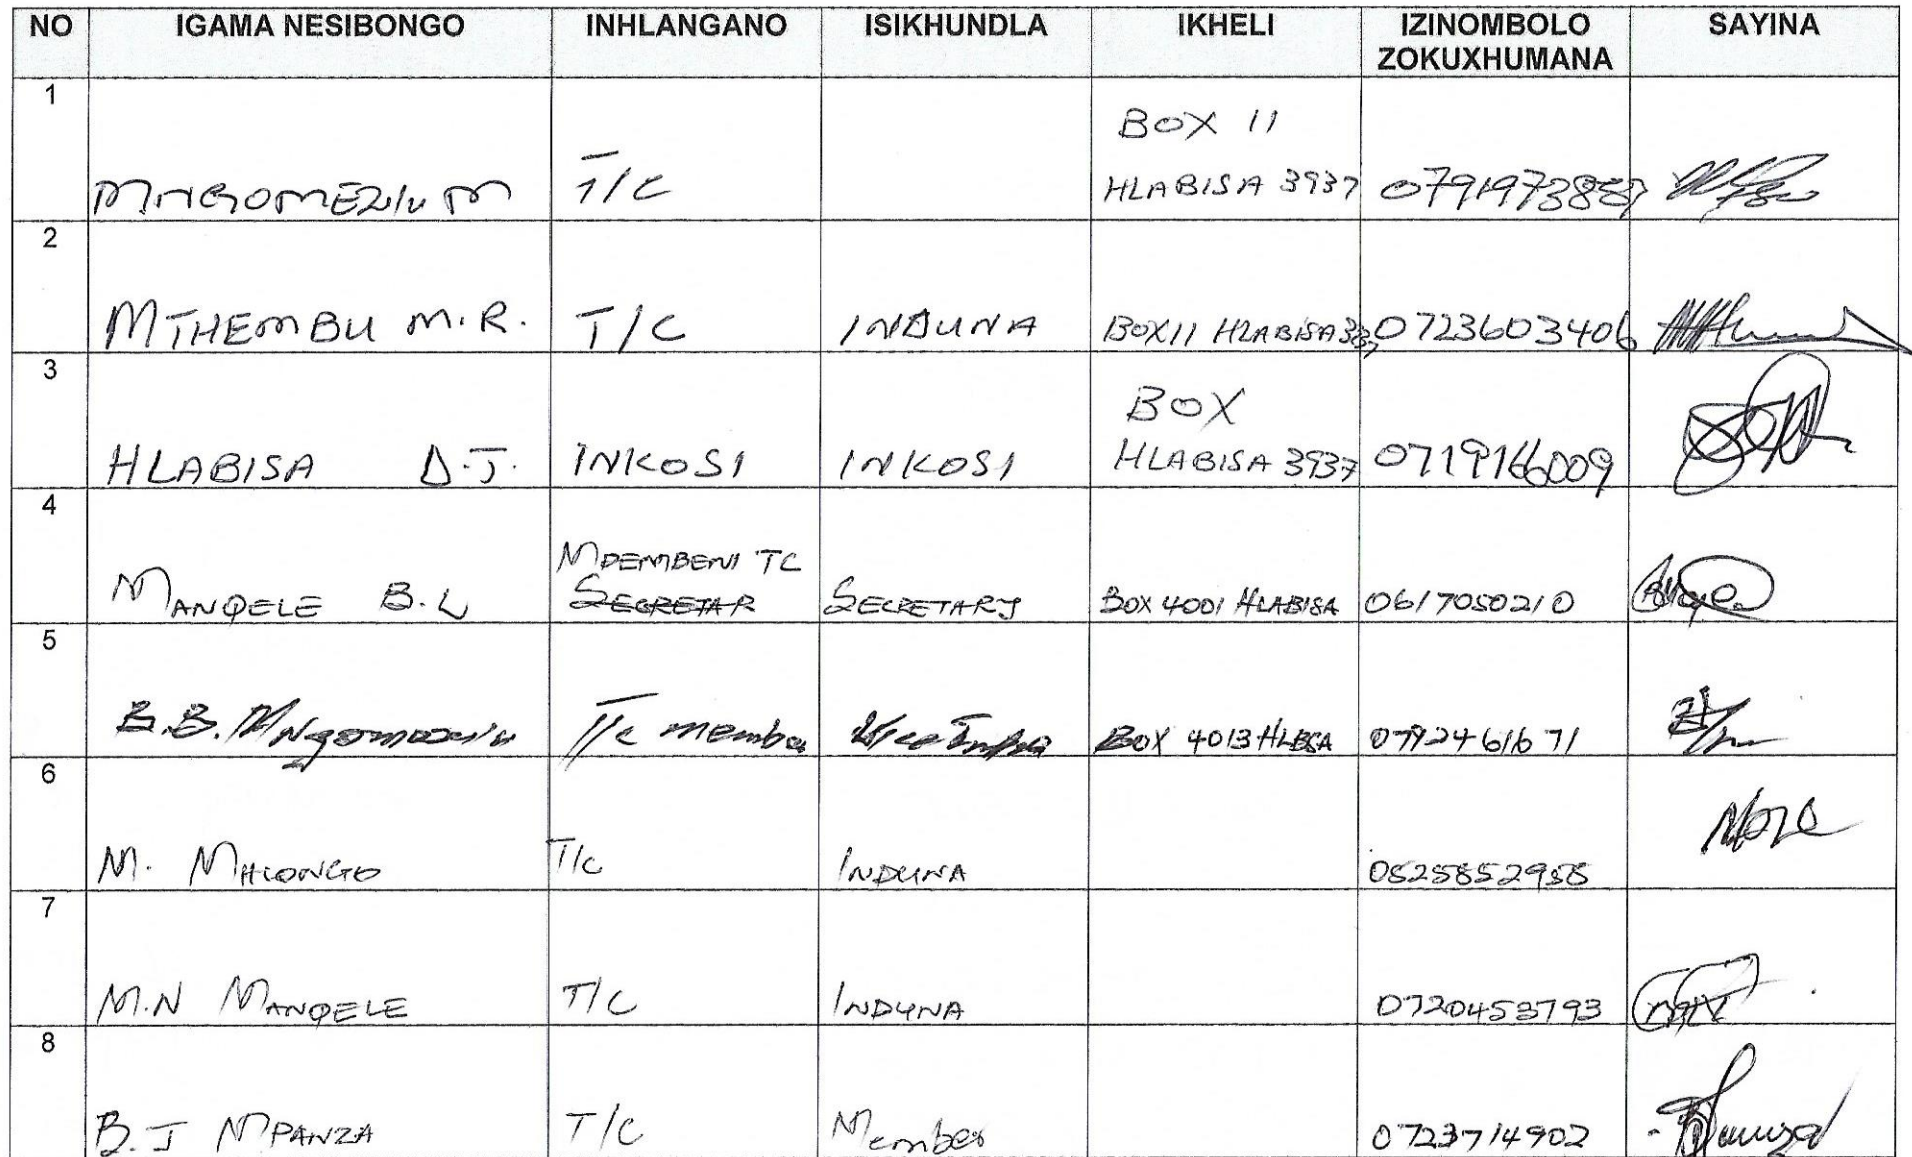 NO IGAMA NESIBONGO INHLANGANO ISIKHUNDLA IKHELI IZINOMBOLO ZOKUXHUMANA SAYINA
1
BOX 11
MNGOMEZULU M T/C HLABISA 3937
2
MTHEMBU M.R. T/C INDUNA BOX 11 HLABISA 0723603406
3
BOX
HLABISA D.J. INKOSI INKOSI HLABISA 3937 0719166009
4
MDEMBENI TC
MANQELE B.L SECRETAR SECRETARY BOX 4001 HLABISA 0617050210
5
B.B. Mngomezulu T/c member BOX 4013 HLBSA 0792461671
6
M. MHLONGO T/C INDUNA
7
M.N MANQELE T/C INDUNA 0720453793
8
B.J MPANZA T/C Member 0723714902